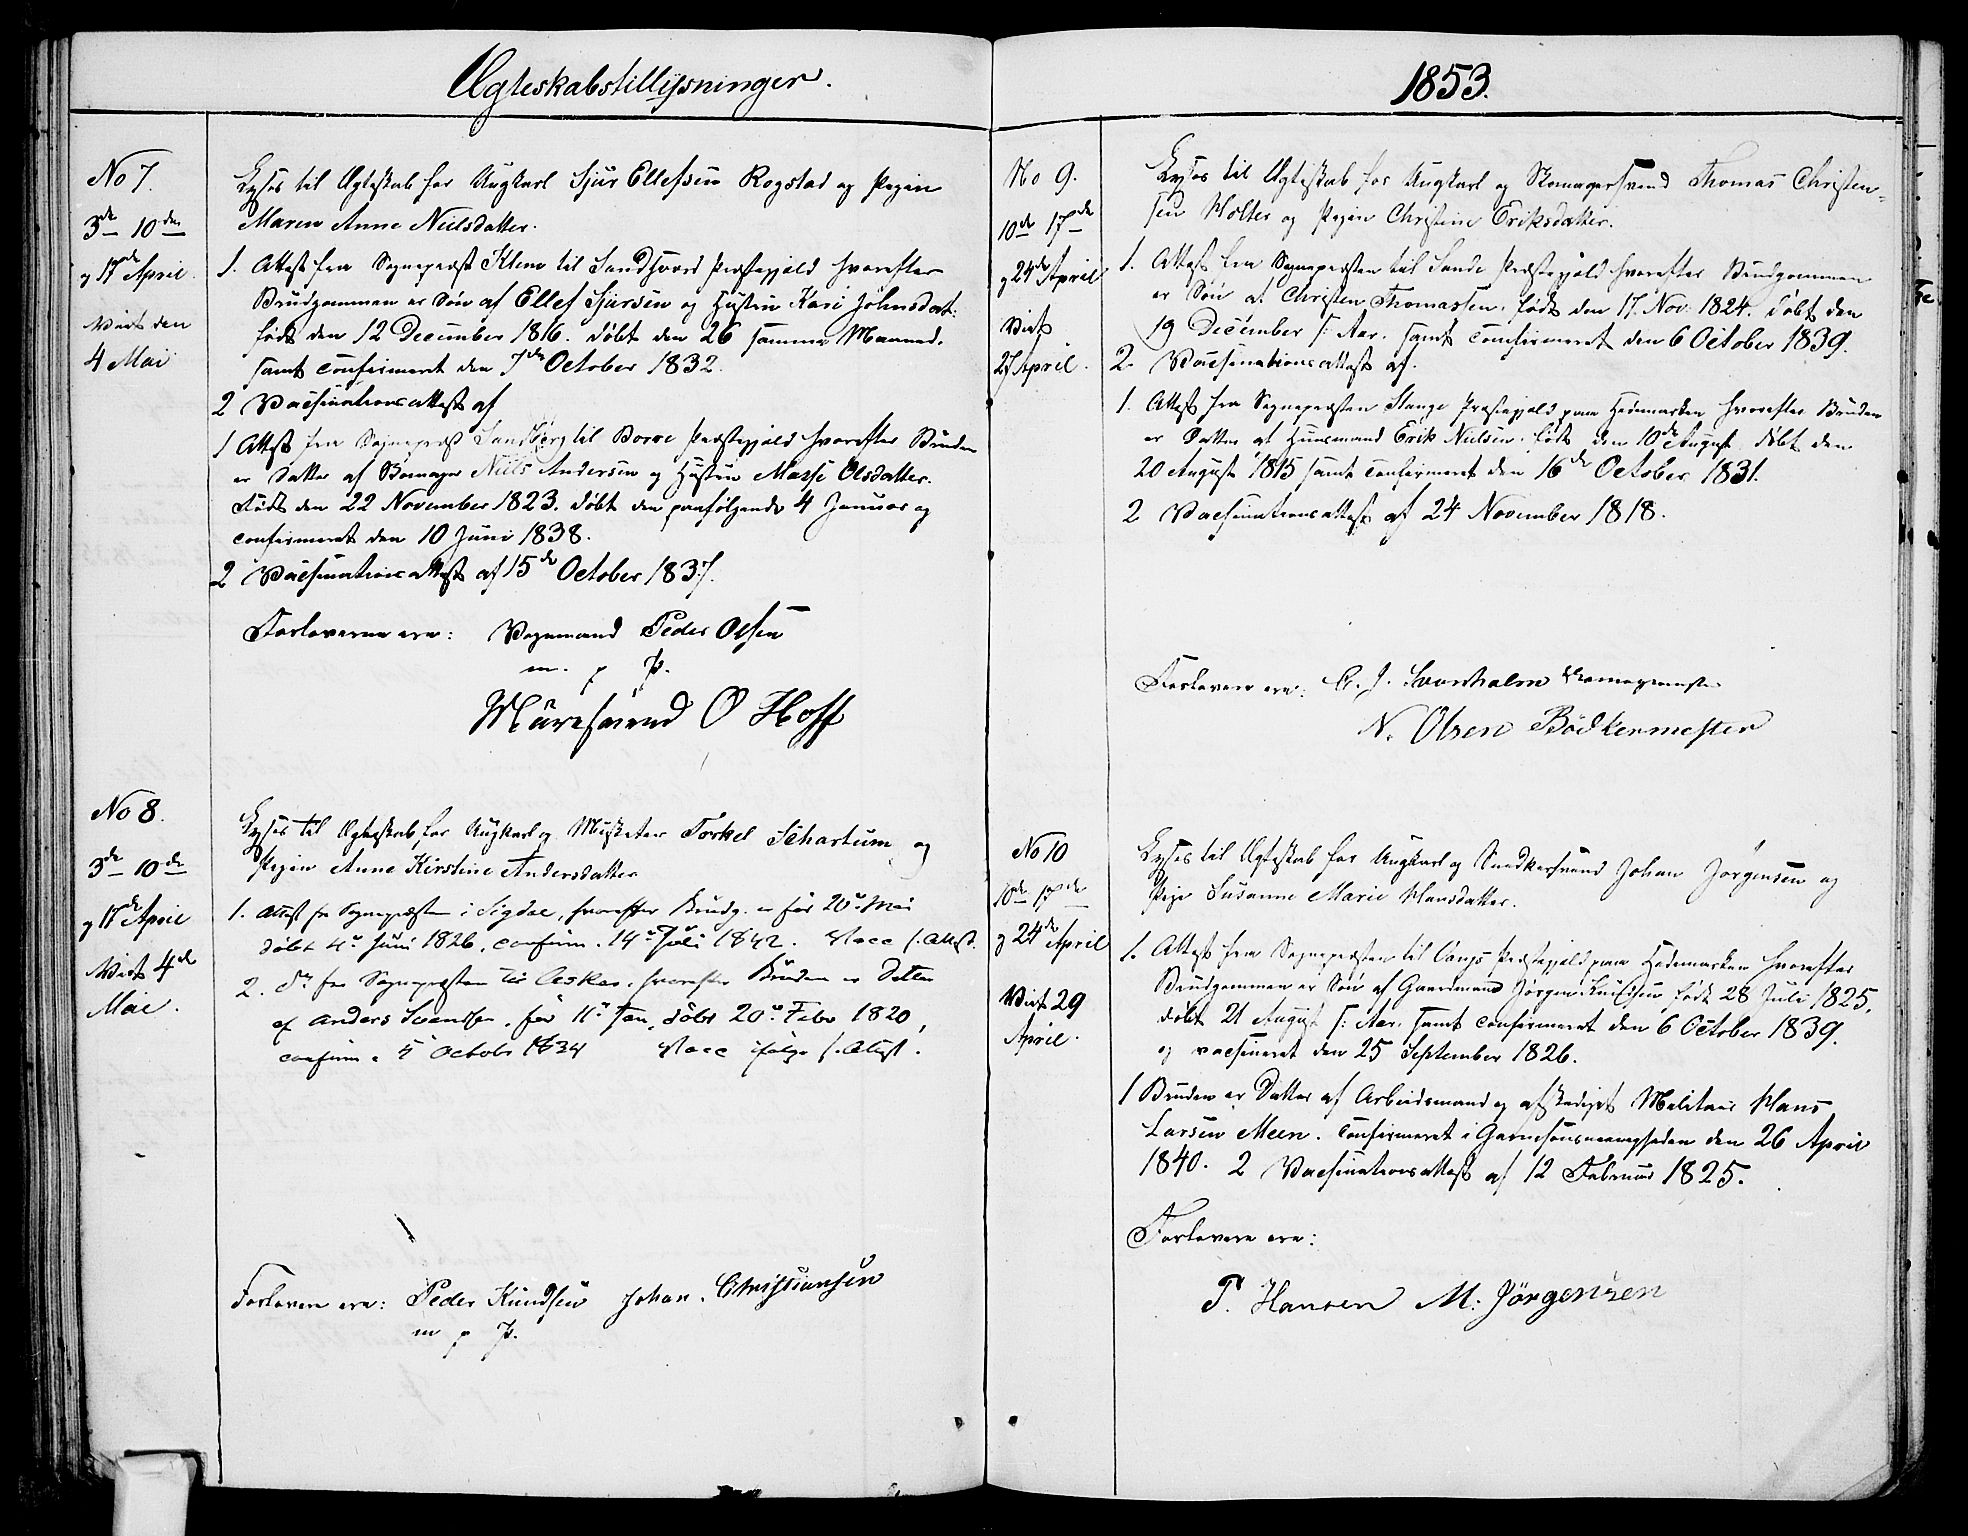 Ægteskabstillysninger.
No 7.
3de 10de
og 17de April
Viet den
4 Mai
Lyses til Ægteskab for Ungkarl Sjur Ellefsen Rogstad og Pigen
Maren Anne Nielsdatter.
1. Attest fra Sognepræst Klem til Sandsvær Præstegjeld hvorefter
Brudgommen er Søn af Ellef Sjursen og Hustru Kari Johnsdat:
født den 12 December 1816. døbt den 26 samme Maaned.
samt confirmeret den 7de October 1832.
2 Vaccinationsattest af
1 Attest fra Sognepræst Sandberg til Borre Præstegjeld hvorefter Bruden
er Datter af Niels Andersen og Hustru Masse Olsdatter.
født den 22 November 1823. døbt den paafølgende 4 Januar og
confirmeret den 10 Juni 1838.
2 Vaccinationsattest af 15de October 1837.
Forloverne ere: Vognmand Peder Olsen
m. p. P.
Muresvend O Hoff
No 8.
3de 10de
og 17de April
Viet 4de
Mai.
Lyses til Ægteskab for Ungkarl og Musketer Torkel Schartum og
Pigen Anne Kirstine Andersdatter
1. Attest fra Sognepræsten i Sigdal, hvorefter Brudg. er født 20de Mai
døbt 4de Juni 1826, confirm. 14de Juli 1842. Vacc s. Attest.
2. Do fra Sognepræsten til Asker, hvorefter Bruden er Datter
af Anders Svendsen, født 11te Jan, døbt 20de Febr 1820,
confirm. 5 Octobr 1834 Vacc ifølge s. Attest.
Forlovere ere: Peder Knudsen Johan Christiansen
m p P.
1853.
No 9.
10de 17de
og 24de April
Viet
27 April.
Lyses til Ægteskab for Ungkarl og Skomagersvend Thomas Christen-
sen Holter og Pigen Christine Eriksdatter.
1. Attest fra Sognepræsten til Sande Præstegjeld hvorefter Brudgommen
er Søn af Christen Thomassen. født den 17. Nov. 1824. døbt den
19 December s: Aar. samt confirmeret den 6 October 1839.
2. Vaccinationsattest af.
1. Attest fra Sognepræsten Stange Præstegjeld paa Hedemarken hvorefter Bruden
er Datter af Huusmand Erik Nielsen. født den 10de August døbt den
20 August 1815 samt confirmeret den 16de October 1831.
2 Vaccinationsattest af 24 November 1818.
Forlovere ere: C. J. Svanholm Skomagermester
N. Olsen Bödkermester
No 10
10de 17de
og 24de April
Viet 29
April.
Lyses til Ægteskab for Ungkarl og Snedkersvend Johan Jørgensen og
Pige Susanne Marie Hansdatter.
1. Attest fra Sognepræsten til Vangs Præstegjeld paa Hedemarken hvorefter
Brudgommen er Søn af Gaardmand Jørgen Knudsen, født 28 Juli 1825,
døbt 21 August s: Aar. samt confirmeret den 6 October 1839.
og vaccineret den 25 September 1826.
1 Bruden er Datter af Arbeidsmand og afskediget Militair Hans
Larsen Meen. confirmeret i Garnisonsmenigheden den 26 April
1840. 2 Vaccinationsattest af 12 Februar 1825.
Forlovere ere:
P. Hansen M: Jörgensen